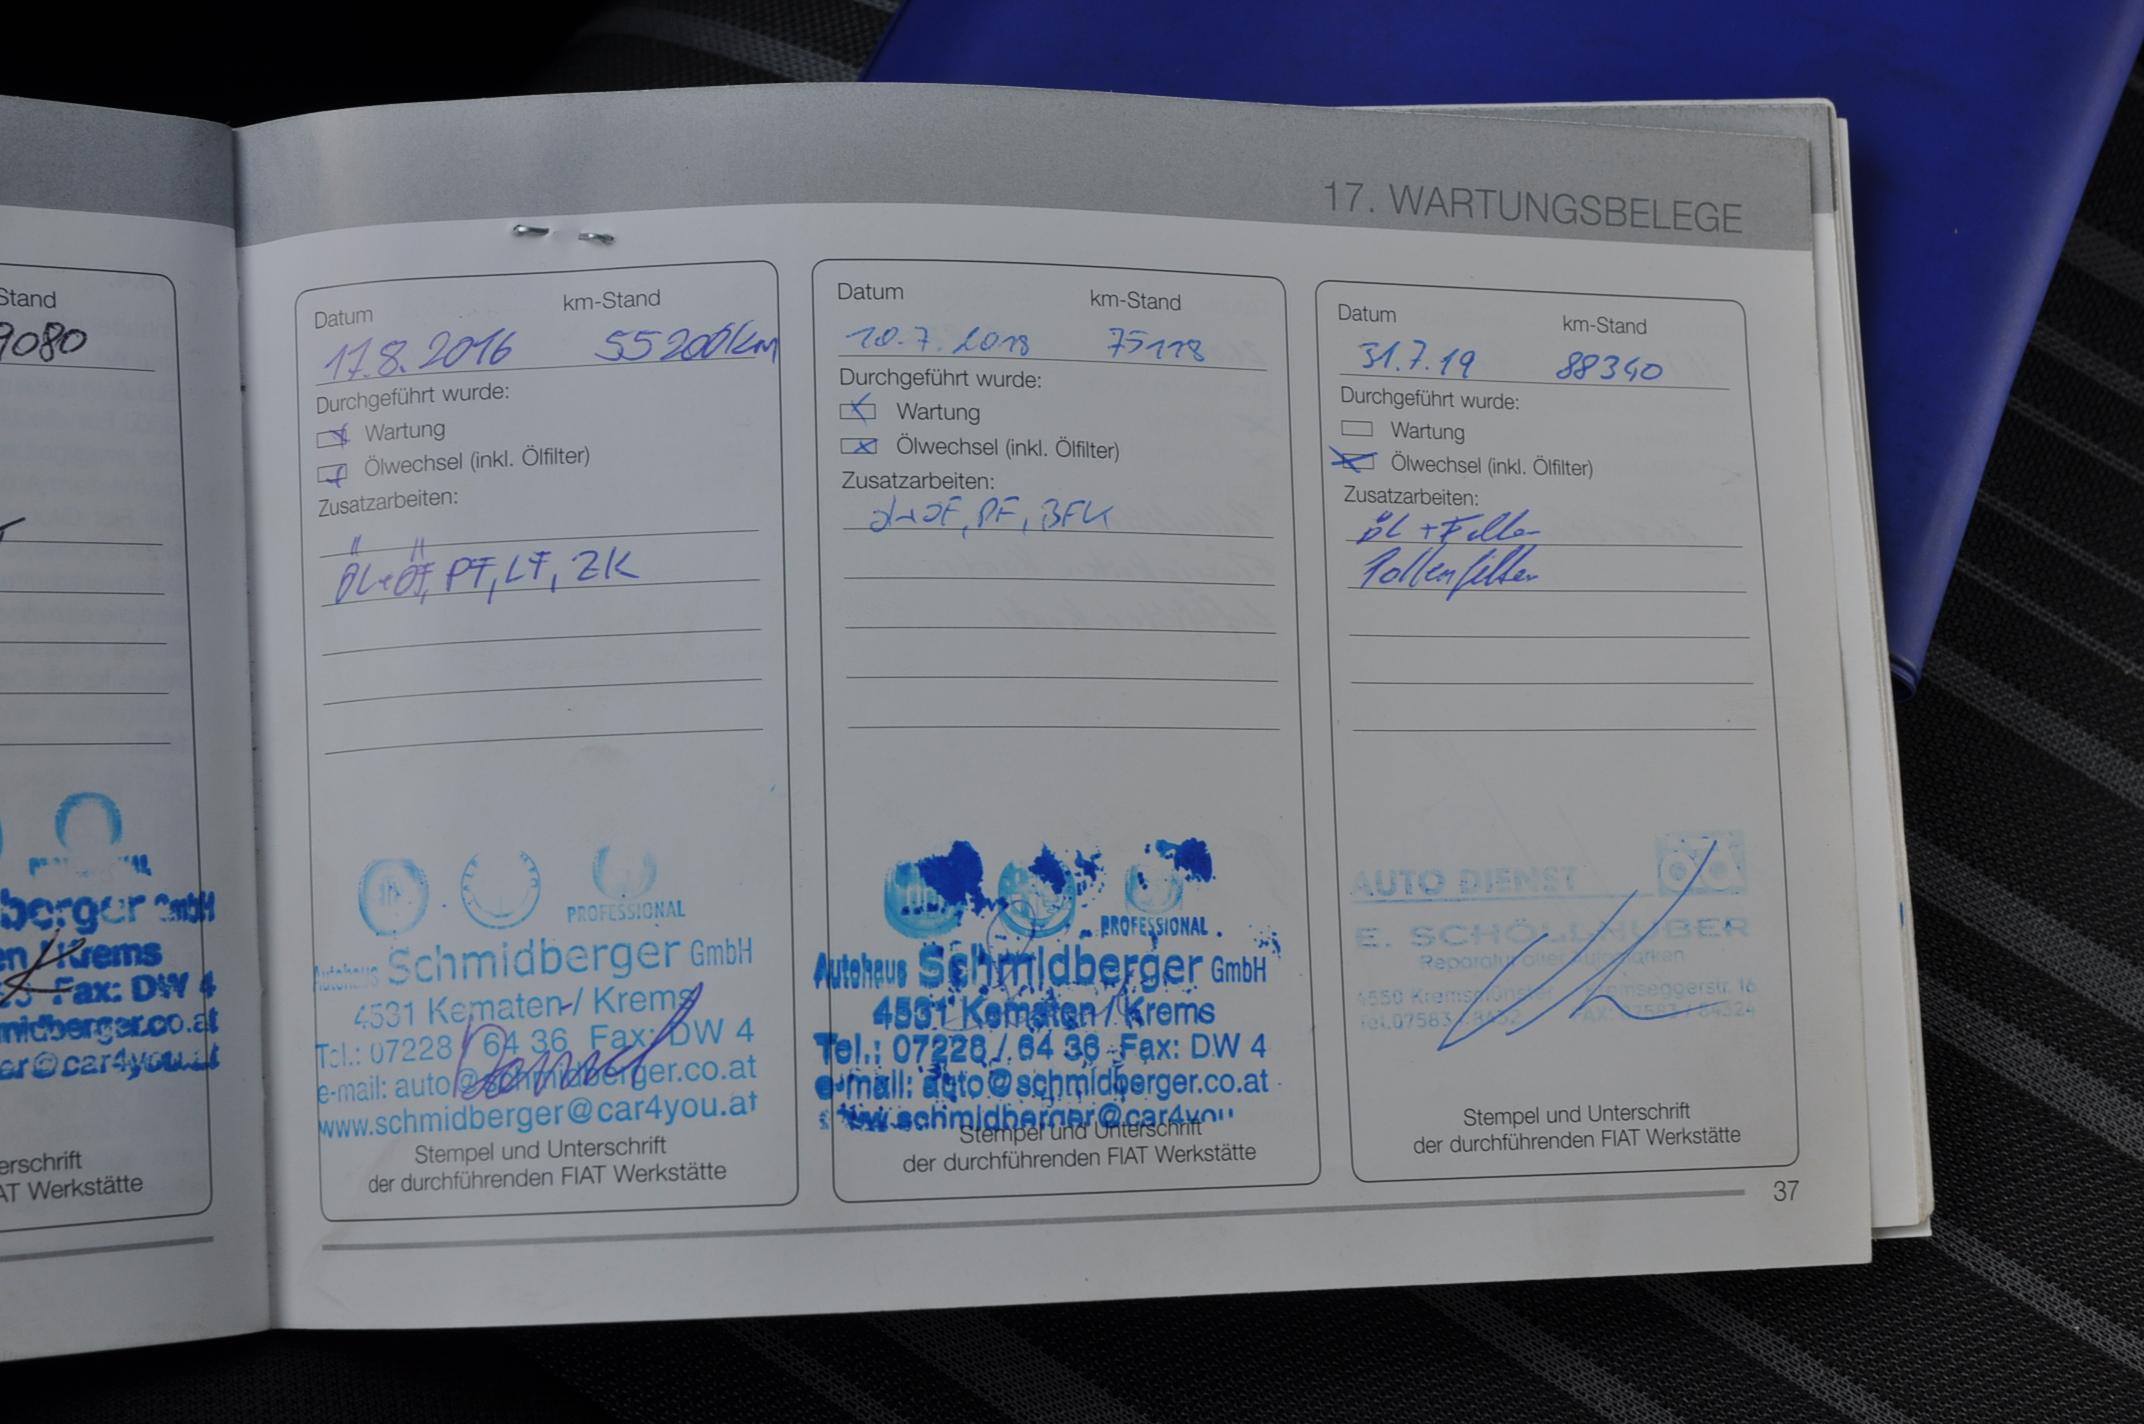 17. WARTUNGSBELEGE
Stand
9080
berger GmbH
Krems
Fax: DW 4
midberger.co.at
er@car4you.at
erschrift
AT Werkstätte
Datum km-Stand
17.8.2016 55200km
Durchgeführt wurde:
Wartung
Ölwechsel (inkl. Ölfilter)
Zusatzarbeiten:
ÖL+ÖF, PF, LF, ZK
PROFESSIONAL
Autohaus Schmidberger GmbH
4531 Kematen / Krems
Tel.: 07228 / 64 36 Fax: DW 4
e-mail: auto@schmidberger.co.at
www.schmidberger@car4you.at
Stempel und Unterschrift
der durchführenden FIAT Werkstätte
Datum km-Stand
10.7.2018 75118
Durchgeführt wurde:
Wartung
Ölwechsel (inkl. Ölfilter)
Zusatzarbeiten:
PF, BFK
PROFESSIONAL
Autohaus Schmidberger GmbH
4531 Kematen / Krems
Tel.: 07228 / 64 36 Fax: DW 4
e-mail: auto@schmidberger.co.at
www.schmidberger@car4you
Stempel und Unterschrift
der durchführenden FIAT Werkstätte
Datum km-Stand
31.7.19 88340
Durchgeführt wurde:
Wartung
Ölwechsel (inkl. Ölfilter)
Zusatzarbeiten:
Öl + Filter
Pollenfilter
AUTO DIENST
E. SCHÖLLHUBER
Reparatur aller Automarken
4550 Kremsmünster Kremseggerstr. 16
Tel.07583 / 8432 FAX: 07583 / 84324
Stempel und Unterschrift
der durchführenden FIAT Werkstätte
37